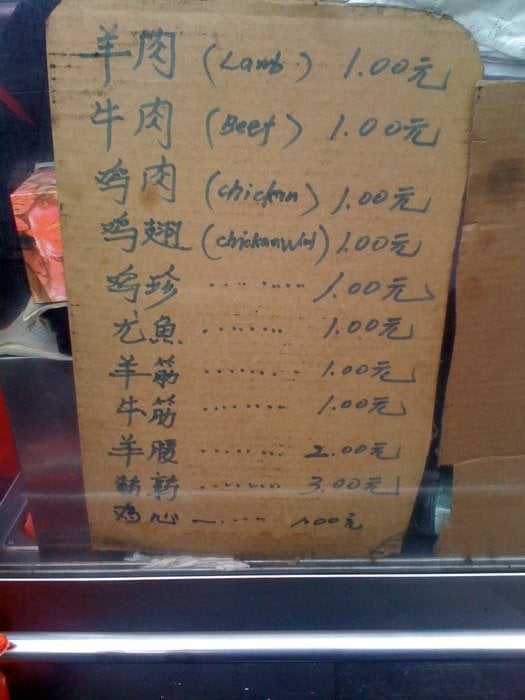 羊肉 (Lamb) 1.00元
牛肉 (Beef) 1.00元
鸡肉 (chickan) 1.00元
鸡翅 (chickanwinl) 1.00元
鸡珍 ········ 1.00元
尤魚 ········ 1.00元
羊筋 ········ 1.00元
牛筋 ········ 1.00元
羊腰 ········ 2.00元
········ 3.00元
鸡心 ········ 1.00元